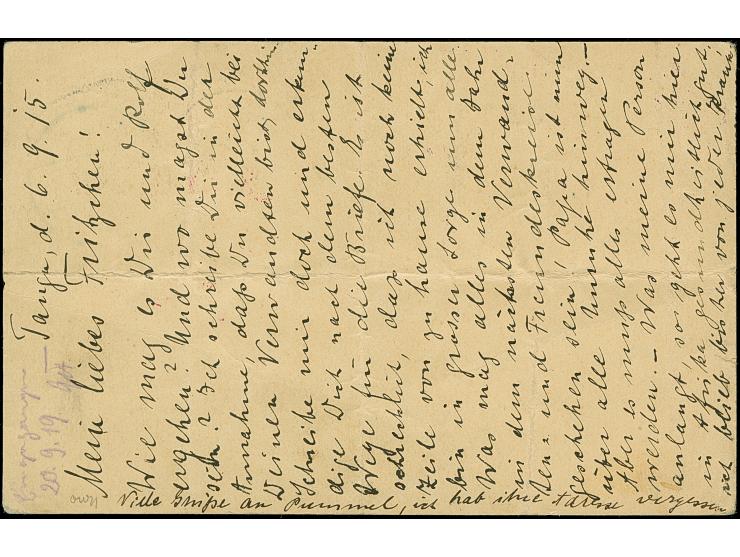 Tanga, d. 6. 9. 15
Eingegangen
20. 9. 19.
Mein liebes Fritzchen!
Wie mag es Dir und Rolf
ergehen? Und wo magst Du
sein? Ich schreibe Dir in der
Annahme, daß Du vielleicht bei
Deinen Verwandten bist, dorthin.
Schreibe mir doch und erkun-
dige Dich nach dem besten
Wege für die Briefe. Es ist
schrecklich, daß ich noch keine
Zeile von zu hause erhielt, ich
bin in grosser Sorge um alle.
Was mag alles in dem Jahr
in dem nächsten Verwand-
ten- und Freundeskreise
geschehen sein! Papa ist nun
über alle Unruhe hinweg, –
Aber es muß alles ertragen
werden. – Was meine Person
anlangt, so geht es mir hier
in Afrika gesundheitlich gut,
ich blieb bisher von jeder
Viele Grüße an Pummel, ich hab ihre Adresse vergessen